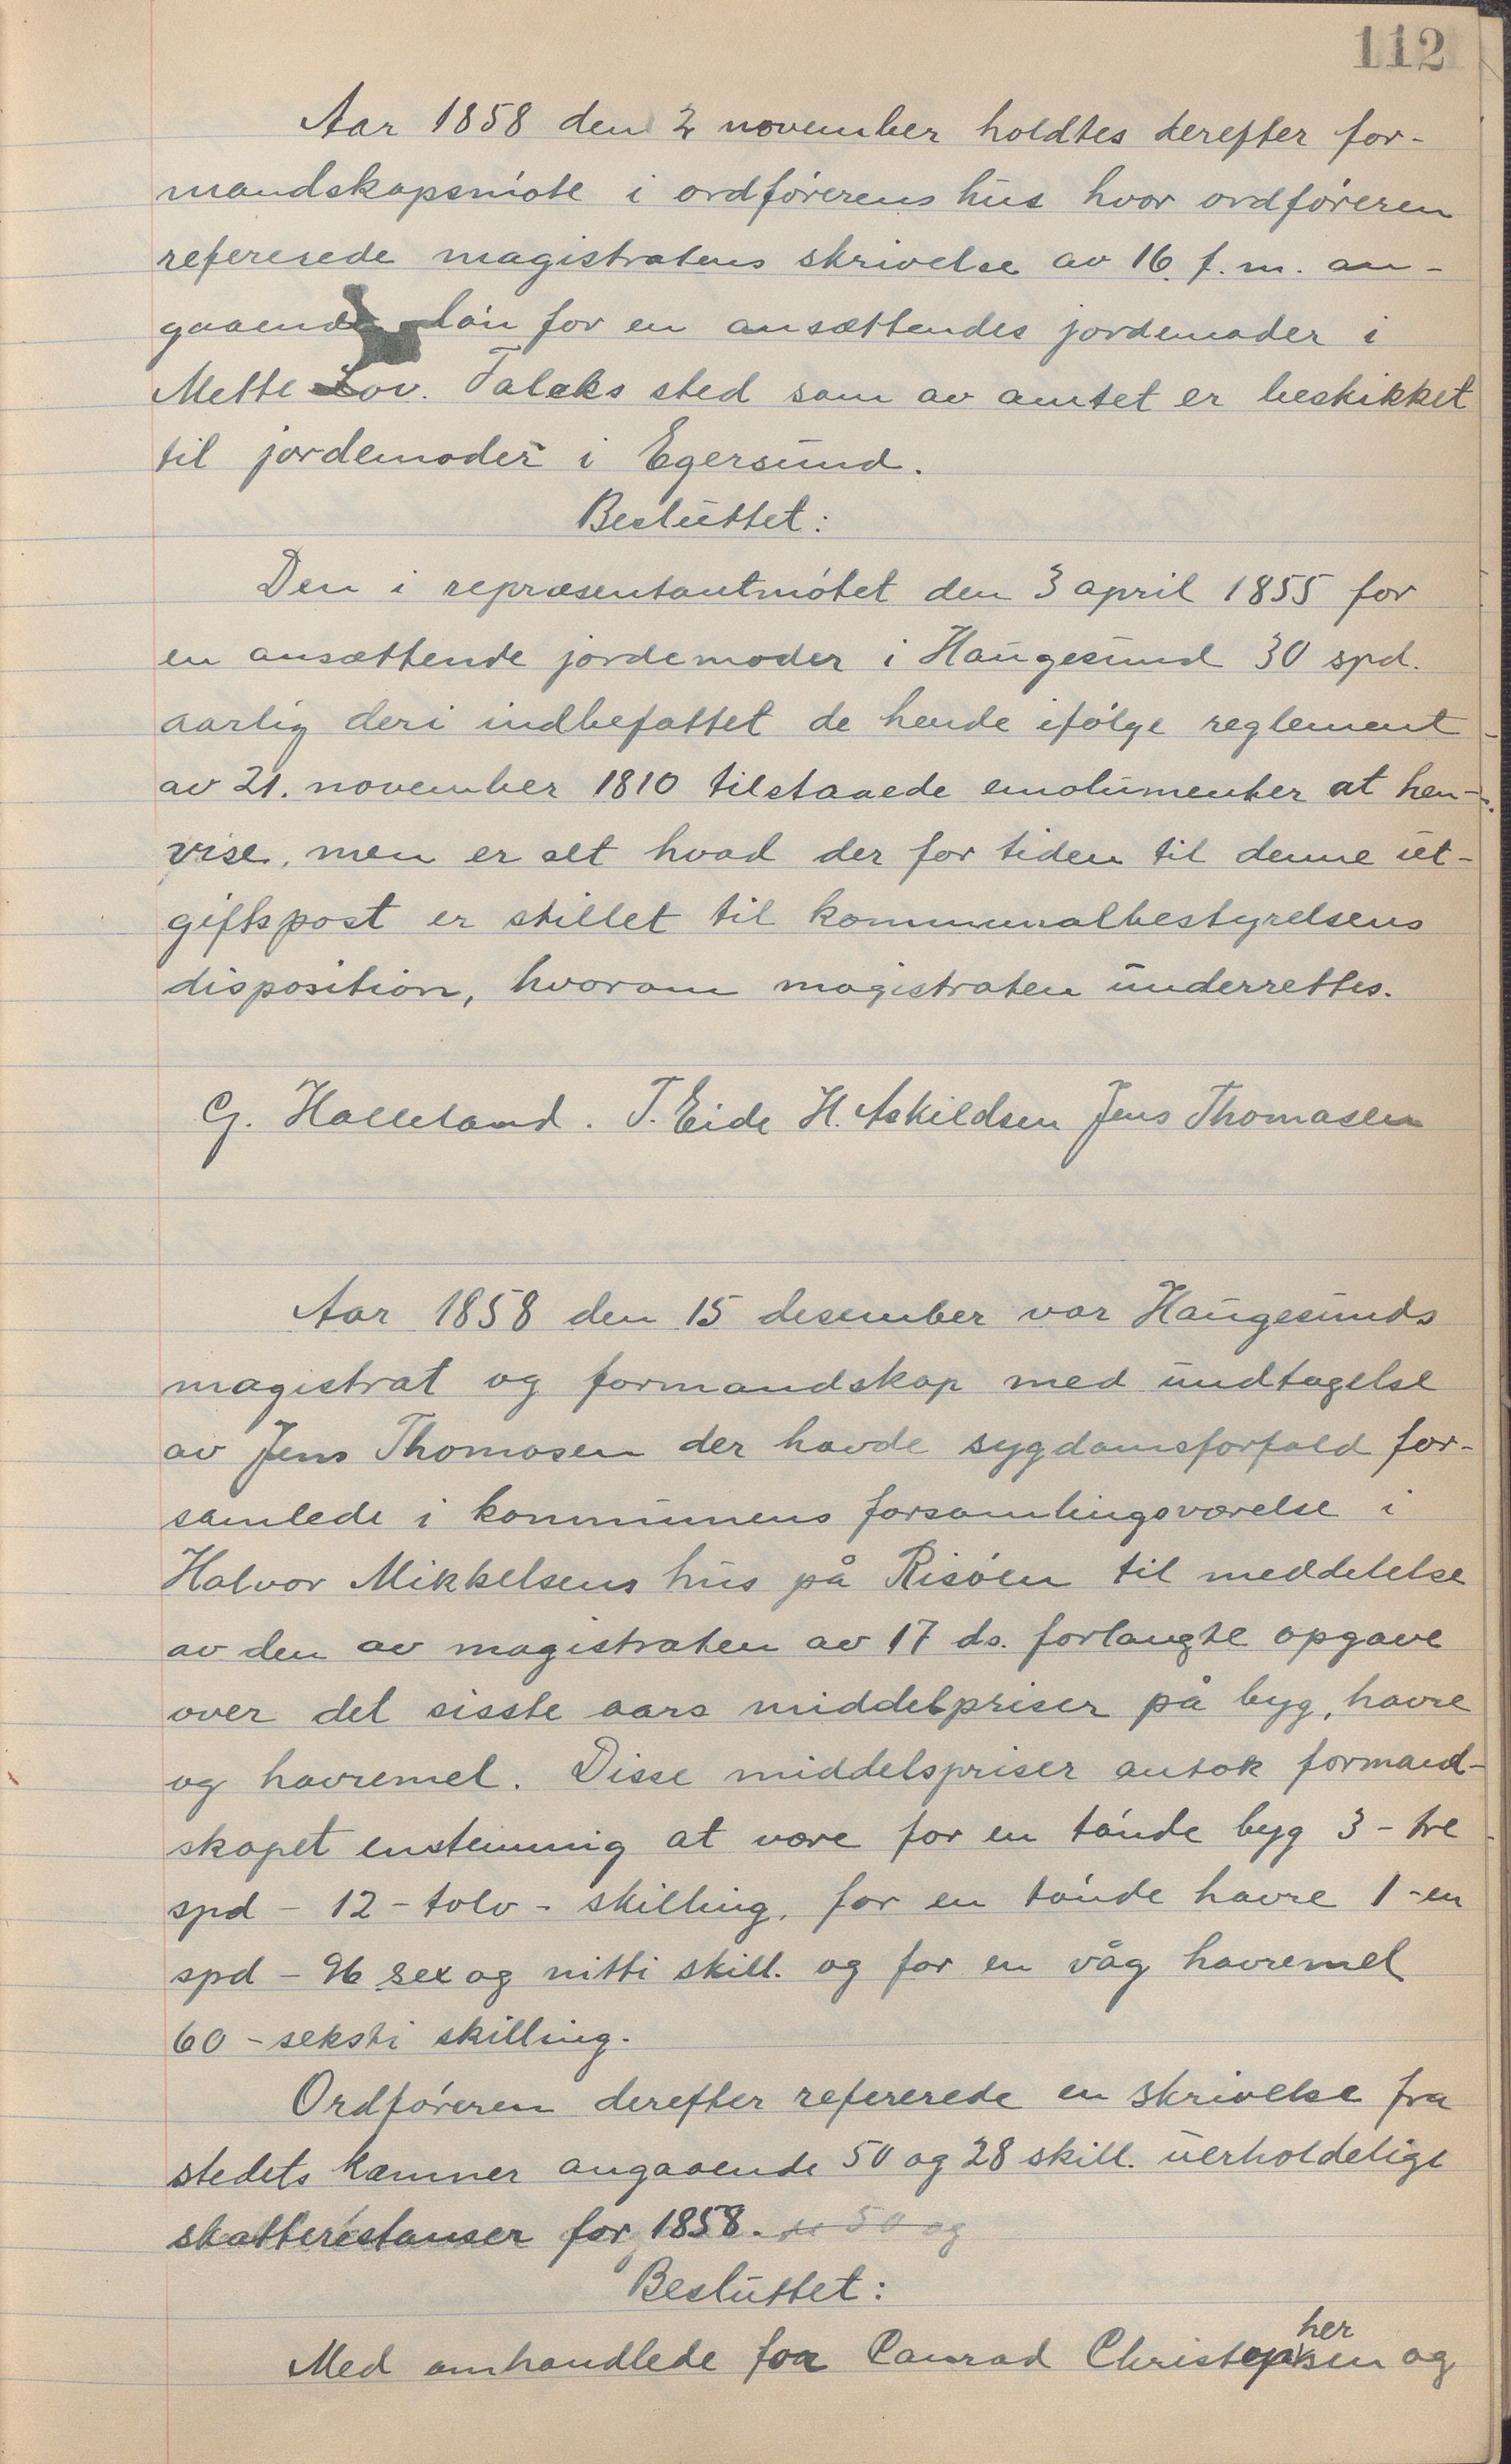 112
Aar 1858 den 2 november holdtes derefter for-
mandskapsmøte i ordførerens hus hvor ordføreren
refererede magistratens skrivelse av 16. f. m. an-
gaaende løn for en ansættendes jordemoder i
Mette Lov. Falcks sted som av amtet er beskikket
til jordemoder i Egersund.
Besluttet:
Den i repræsentantmøtet den 3 april 1855 for
en ansættende jordemoder i Haugesund 30 spd.
aarlig deri indbefattet de hende ifølge reglement
av 21. november 1810 tilstaaede emolumenter at hen-
vise, men er alt hvad der for tiden til denne ut-
giftspost er stillet til kommunalbestyrelsens
disposition, hvorom magistraten underrettes.
G. Halleland. T. Eide H. Askildsen Jens Thomasen
Aar 1858 den 15 desember var Haugesunds
magistrat og formandskap med undtagelse
av Jens Thomasen der havde sygdomsforfald for-
samlede i kommunens forsamlingsværelse i
Halvor Mikkelsens hus på Risøen til meddelelse
av den av magistraten av 17 ds. forlangte opgave
over det sisste aars middelpriser på byg, havre
og havremel. Disse middelspriser antok formand-
skapet enstemmig at være for en tønde byg 3 - tre
spd - 12 - tolv - skilling, for en tønde havre 1 - en
spd - 96 sex og nitti skill. og for en våg havremel
60 - seksti skilling.
Ordføreren derefter refererede en skrivelse fra
stedets kæmner angaaende 50 og 28 skill. uerholdelige
skatterestanser for 1858. 50 og
Besluttet:
Med omhandlede for Conrad Christophersen og